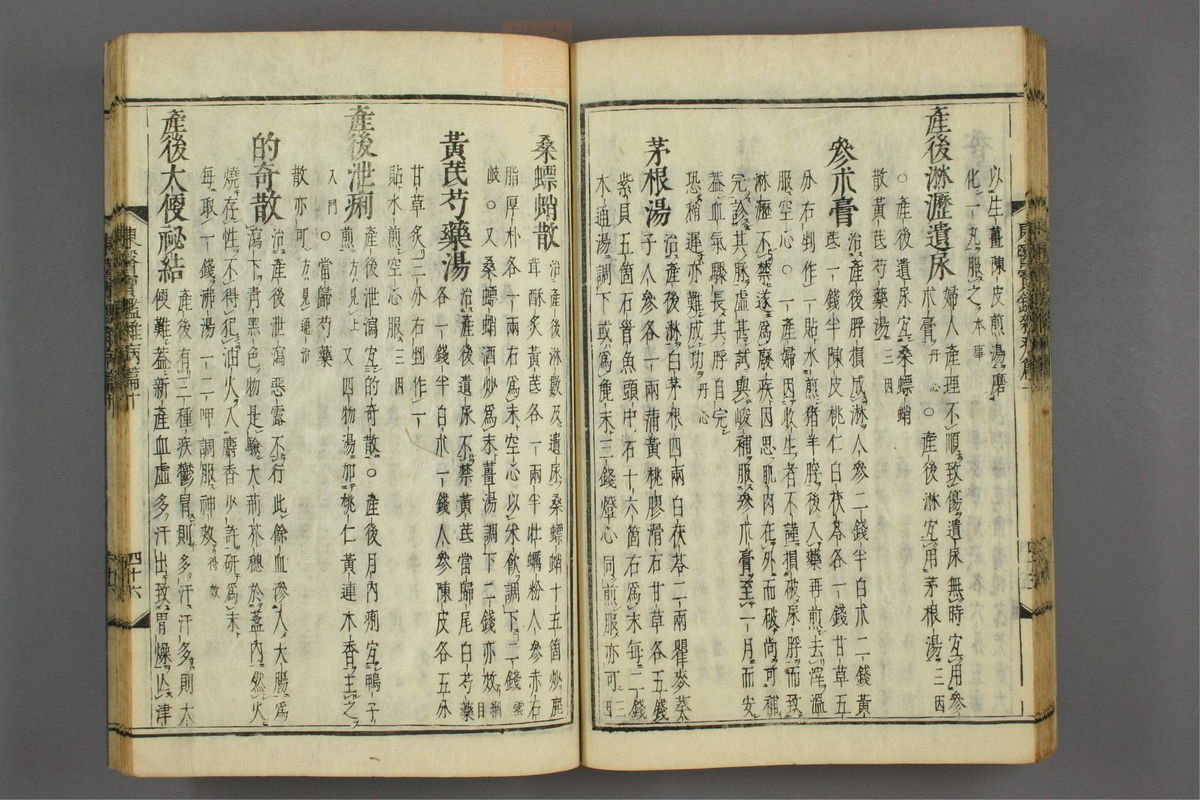 以生薑陳皮煎湯磨
化一丸服之本事
產後淋瀝遺尿
婦人產理不順致傷遺尿無時宜用參
朮膏丹心○產後淋宜用茅根湯三因
○產後遺尿宜桑螵蛸
散黃芪芍藥湯三四
參朮膏
治產後脬損成淋人參二錢半白朮二錢黃
芪一錢半陳皮桃仁白茯苓各一錢甘草五
分右剉作一貼水煎猪羊脬後入藥再煎去滓溫
服空心○一產婦因收生者不謹損破尿脬而致
淋瀝不禁遂爲廢疾因思肌肉在外而破尚可補
完診其脉虛甚試與峻補服參朮膏至一月而安
蓋血氣驟長其脬自完
恐稍遲亦難成功丹心
茅根湯
治產後淋白茅根四兩白茯苓二兩瞿麥葵
子人參各一兩蒲黃桃膠滑石甘草各五錢
紫貝五箇石首魚頭中石十六箇右爲末每二錢
木通湯調下或爲麁末三錢燈心同煎服亦可三因
桑螵蛸散
產後淋數及遺尿桑螵蛸十五箇炒鹿
茸酥炙黃芪各一兩半牡蠣粉人參赤石
脂厚朴各一兩右爲末空心以米飮調下二錢雲
岐○又桑螵蛸酒炒爲末薑湯調下二錢亦效綱目
黃芪芍藥湯
治產後遺尿不禁黃芪當歸尾白芍藥
各一錢半白朮一錢人參陳皮各五分
甘草炙三分右剉作一
貼水煎空心服三四
產後泄痢
產後泄瀉宜的奇散○產後月內痢宜鴨子
煎方見上又四物湯加桃仁黃連木香主之
入門○當歸芍藥
散亦可方見通治
的奇散
治產後泄瀉惡露不行此餘血滲入大腸爲
瀉下靑黑色物是驗大荊芥穗於盞內燃火
燒存性不得犯油火入麝香少許硏爲末
每取一錢沸湯一二呷調服神效得效
產後大便祕結
產後有三種疾鬱冒則多汗汗多則大
便難蓋新產血虛多汗出致胃燥亾津
東醫寶鑑雜病篇十
四十六